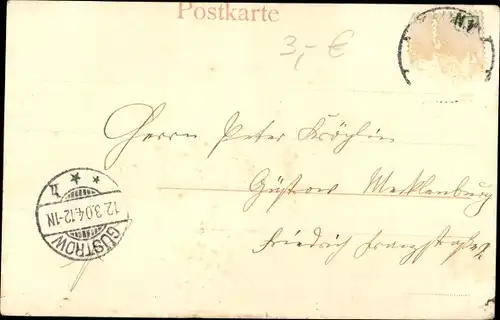 Postkarte
3,- €
Herrn Peter Kröplin
Güstrow Mecklenburg
Friedrich Franzstraße
GÜSTROW
12.3.04.12-1N